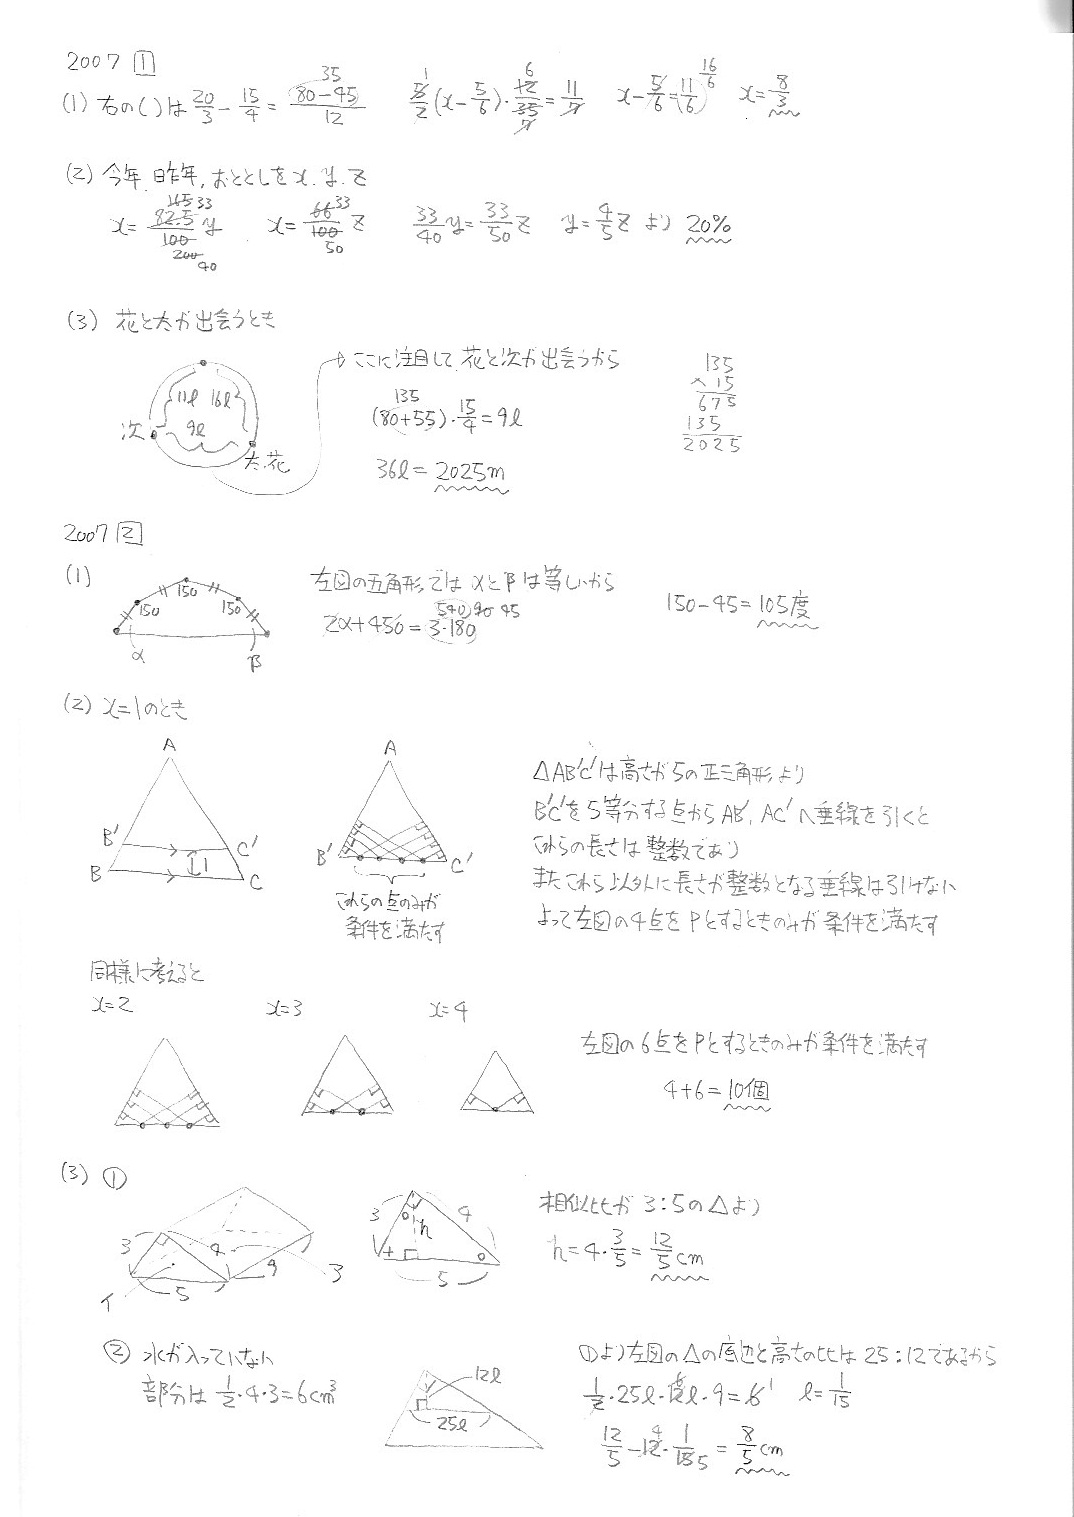 2007 1
(1) 右の( )は 20/3 - 15/4 = (80-45)/12 35 5/2(x-5/6)・12/35=11/7 1 6 7 x-5/6=11/6 16/6 x=8/3
(2) 今年, 昨年, おととしを x, y, z
x=82.5/100 y 165 33 200 40 x=66/100 z 33 50 33/40 y=33/50 z y=4/5 z より 20%
(3) 花と太が出会うとき
ここに注目して 花と次が出会うから
11ℓ 16ℓ
9ℓ
次
太, 花
135
(80+55)・15/4=9ℓ
36ℓ=2025m
135
×15
675
135
2025
2007 2
(1)
150 150 150
α β
左図の五角形では αとβは等しいから
2α+450=3・180 540 90 45
150-45=105度
(2) x=1のとき
A
B' C'
B C
1
A
B' C'
これらの点のみが
条件を満たす
△AB'C'は高さが5の正三角形より
B'C'を5等分する点からAB', AC'へ垂線を引くと
これらの長さは整数であり
またこれら以外に長さが整数となる垂線は引けない
よって左図の4点をPとするときのみが条件を満たす
同様に考えると
x=2 x=3 x=4
左図の6点をPとするときのみが条件を満たす
4+6=10個
(3) ①
3 4 5 9
イ
3 4 h 5
相似比が 3:5の△より
h=4・3/5=12/5 cm
② 水が入っていない
部分は 1/2・4・3=6cm³
12ℓ
25ℓ
①より左図の△の底辺と高さの比は 25:12であるから
1/2・25ℓ・12ℓ・9=6 1 ℓ=1/15
12/5-12・1/15=8/5 cm 4 5